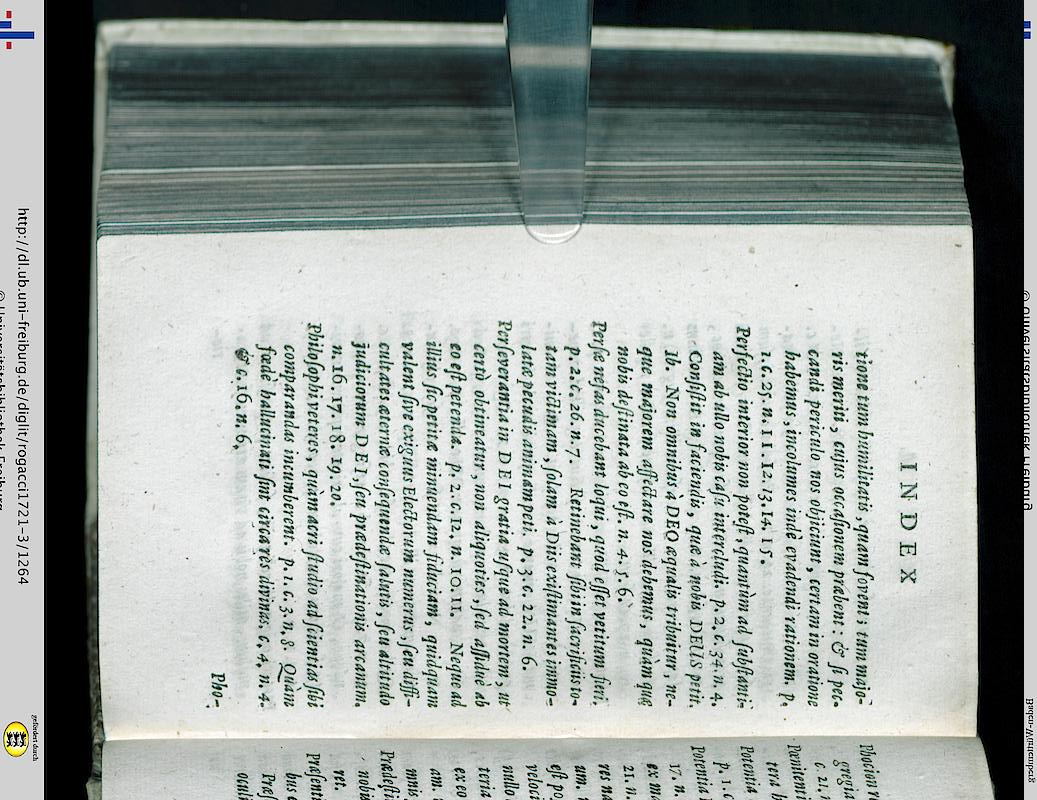 INDEX
tione tum humilitatis, quam fovent; tum majo-
ris meriti, cujus occasionem præbent: & si pec-
candi periculo nos objiciunt, certam in oratione
habemus, incolumes indè evadendi rationem. p.
1. c. 25. n. 11. 12. 13. 14. 15.
Perfectio interior non potest, quantùm ad substanti-
am ab ullo nobis casu intercludi. p. 2. c. 34. n. 4.
Consistit in faciendis, quæ à nobis DEUS petit.
Ib. Non omnibus à DEO æqualis tribuitur, ne-
que majorem affectare nos debemus, quàm quę
nobis destinata ab eo est. n. 4. 5. 6.
Persæ nefas ducebant loqui, quod esset vetitum fieri.
p. 2. c. 26. n. 7. Retinebant sibi in sacrificiis to-
tam victimam, solam à Diis existimantes immo-
latæ pecudis animam peti. p. 3. c. 22. n. 6.
Perseverantia in DEI gratia usque ad mortem, ut
certò obtineatur, non aliquoties, sed assiduè ab
eo est petenda. p. 2. c. 12. n. 10. 11. Neque ad
illius sic petitæ minuendam fiduciam, quidquam
valent sive exiguus Electorum numerus, seu diffi-
cultates æternæ consequendæ salutis, seu altitudo
judiciorum DEI, seu prædestinationis arcanum.
n. 16. 17. 18. 19. 20.
Philosophi veteres, quam acri studio ad scientias sibi
comparandas incumberent. p. 1. c. 3. n. 8. Quam
fœdè hallucinati sint circa res divinas. c. 4. n. 4.
& c. 16. n. 6.
Pho-
Phocion
gregia
c. 21.
Pœnitenti
tera
Potentia
p. 1. c
Potentia
17. n.
ex ma
21. n.
res na
um.
est po
veloci
nullo
teria
ex eo
am.
mnis
Prædest
nobis
ret.
Præsent
bus
Præs
oculi
http://dl.ub.uni-freiburg.de/diglit/rogacci1721-3/1264
© Universitätsbibliothek Freiburg
gefördert durch
Baden-Württemberg